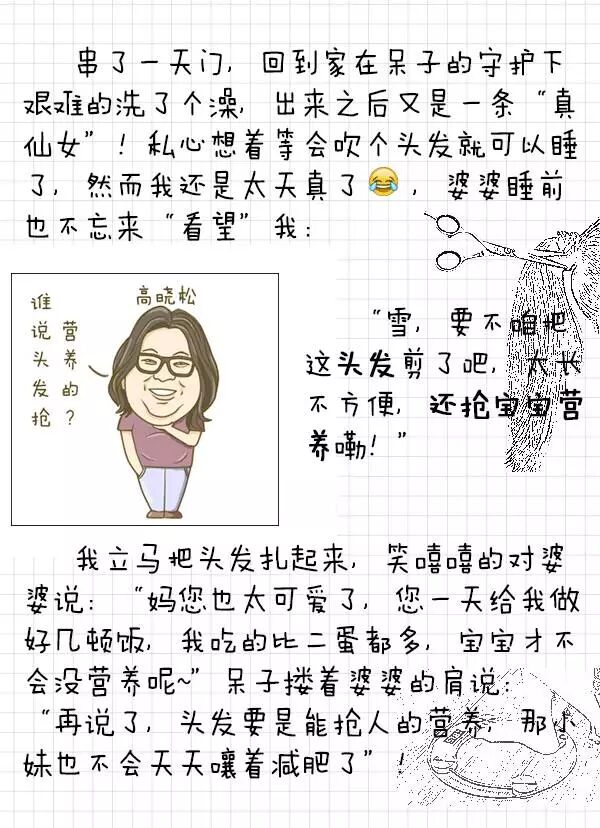 串了一天门，回到家在呆子的守护下
艰难的洗了个澡，出来之后又是一条“真
仙女”！私心想着等会吹个头发就可以睡
了，然而我还是太天真了😂，婆婆睡前
也不忘来“看望”我：
高晓松
谁说头发抢
营养的？
“雪，要不咱把
这头发剪了吧，太长
不方便，还抢宝宝营
养嘞！”
我立马把头发扎起来，笑嘻嘻的对婆
婆说：“妈您也太可爱了，您一天给我做
好几顿饭，我吃的比二蛋都多，宝宝才不
会没营养呢~”呆子搂着婆婆的肩说：
“再说了，头发要是能抢人的营养，那小
妹也不会天天嚷着减肥了”！